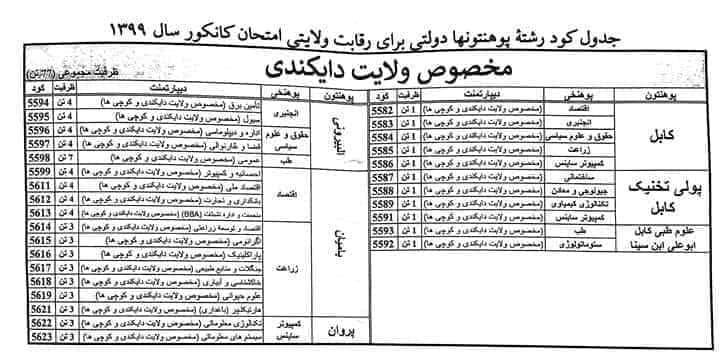 جدول کود رشتهٔ پوهنتونها دولتی برای رقابت ولایتی امتحان کانکور سال ۱۳۹۹
مخصوص ولایت دایکندی
ظرفیت مجموعی (77 تن)
پوهنتون پوهنځی دیپارتمنت ظرفیت کود
کابل اقتصاد (مخصوص ولایت دایکندی و کوچی ها) 1 تن 5582
انجنیری (مخصوص ولایت دایکندی و کوچی ها) 1 تن 5583
حقوق و علوم سیاسی (مخصوص ولایت دایکندی و کوچی ها) 1 تن 5584
زراعت (مخصوص ولایت دایکندی و کوچی ها) 1 تن 5585
کمپیوتر ساینس (مخصوص ولایت دایکندی و کوچی ها) 1 تن 5586
پولی تخنیک کابل ساختمانی (مخصوص ولایت دایکندی و کوچی ها) 1 تن 5587
جیولوجی و معادن (مخصوص ولایت دایکندی و کوچی ها) 1 تن 5588
تکنالوژی کیمیاوی (مخصوص ولایت دایکندی و کوچی ها) 1 تن 5589
کمپیوتر ساینس (مخصوص ولایت دایکندی و کوچی ها) 1 تن 5591
علوم طبی کابل ابوعلی ابن سینا طب (مخصوص ولایت دایکندی و کوچی ها) 1 تن 5593
ستوماتولوژی (مخصوص ولایت دایکندی و کوچی ها) 1 تن 5592
پوهنتون پوهنځی دیپارتمنت ظرفیت کود
البیرونی انجنیری تأمین برق (مخصوص ولایت دایکندی و کوچی ها) 4 تن 5594
سیول (مخصوص ولایت دایکندی و کوچی ها) 4 تن 5595
حقوق و علوم سیاسی اداره و دیپلوماسی (مخصوص ولایت دایکندی و کوچی ها) 4 تن 5596
قضا و څارنوالی (مخصوص ولایت دایکندی و کوچی ها) 4 تن 5597
طب عمومی (مخصوص ولایت دایکندی و کوچی ها) 7 تن 5598
بامیان اقتصاد احصائیه و کمپیوتر (مخصوص ولایت دایکندی و کوچی ها) 4 تن 5599
اقتصاد ملی (مخصوص ولایت دایکندی و کوچی ها) 4 تن 5611
بانکداری و تجارت (مخصوص ولایت دایکندی و کوچی ها) 4 تن 5612
منجمنت و اداره تشبثات (BBA) (مخصوص ولایت دایکندی و کوچی ها) 4 تن 5613
زراعت اقتصاد و توسعه زراعتی (مخصوص ولایت دایکندی و کوچی ها) 3 تن 5614
اگرانومی (مخصوص ولایت دایکندی و کوچی ها) 3 تن 5615
(مخصوص ولایت دایکندی و کوچی ها) 3 تن 5616
جنگلات و منابع طبیعی (مخصوص ولایت دایکندی و کوچی ها) 3 تن 5617
خاکشناسی و آبیاری (مخصوص ولایت دایکندی و کوچی ها) 3 تن 5618
علوم حیوانی (مخصوص ولایت دایکندی و کوچی ها) 3 تن 5619
هارتیکلچر (باغداری) (مخصوص ولایت دایکندی و کوچی ها) 3 تن 5621
پروان کمپیوتر ساینس تکنالوژی معلوماتی (مخصوص ولایت دایکندی و کوچی ها) 3 تن 5622
سیستم های معلوماتی (مخصوص ولایت دایکندی و کوچی ها) 3 تن 5623